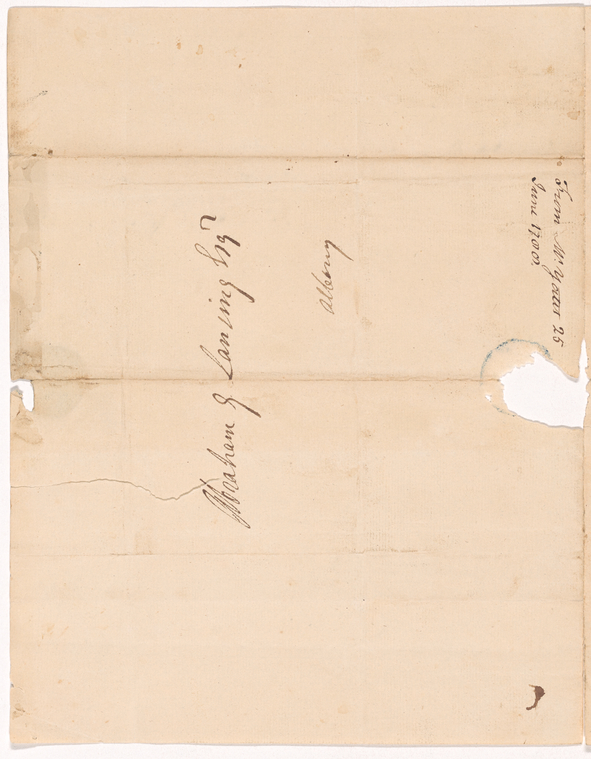 Abraham G Lansing Esqr
Albany
From Mr Yates 25
June 1700